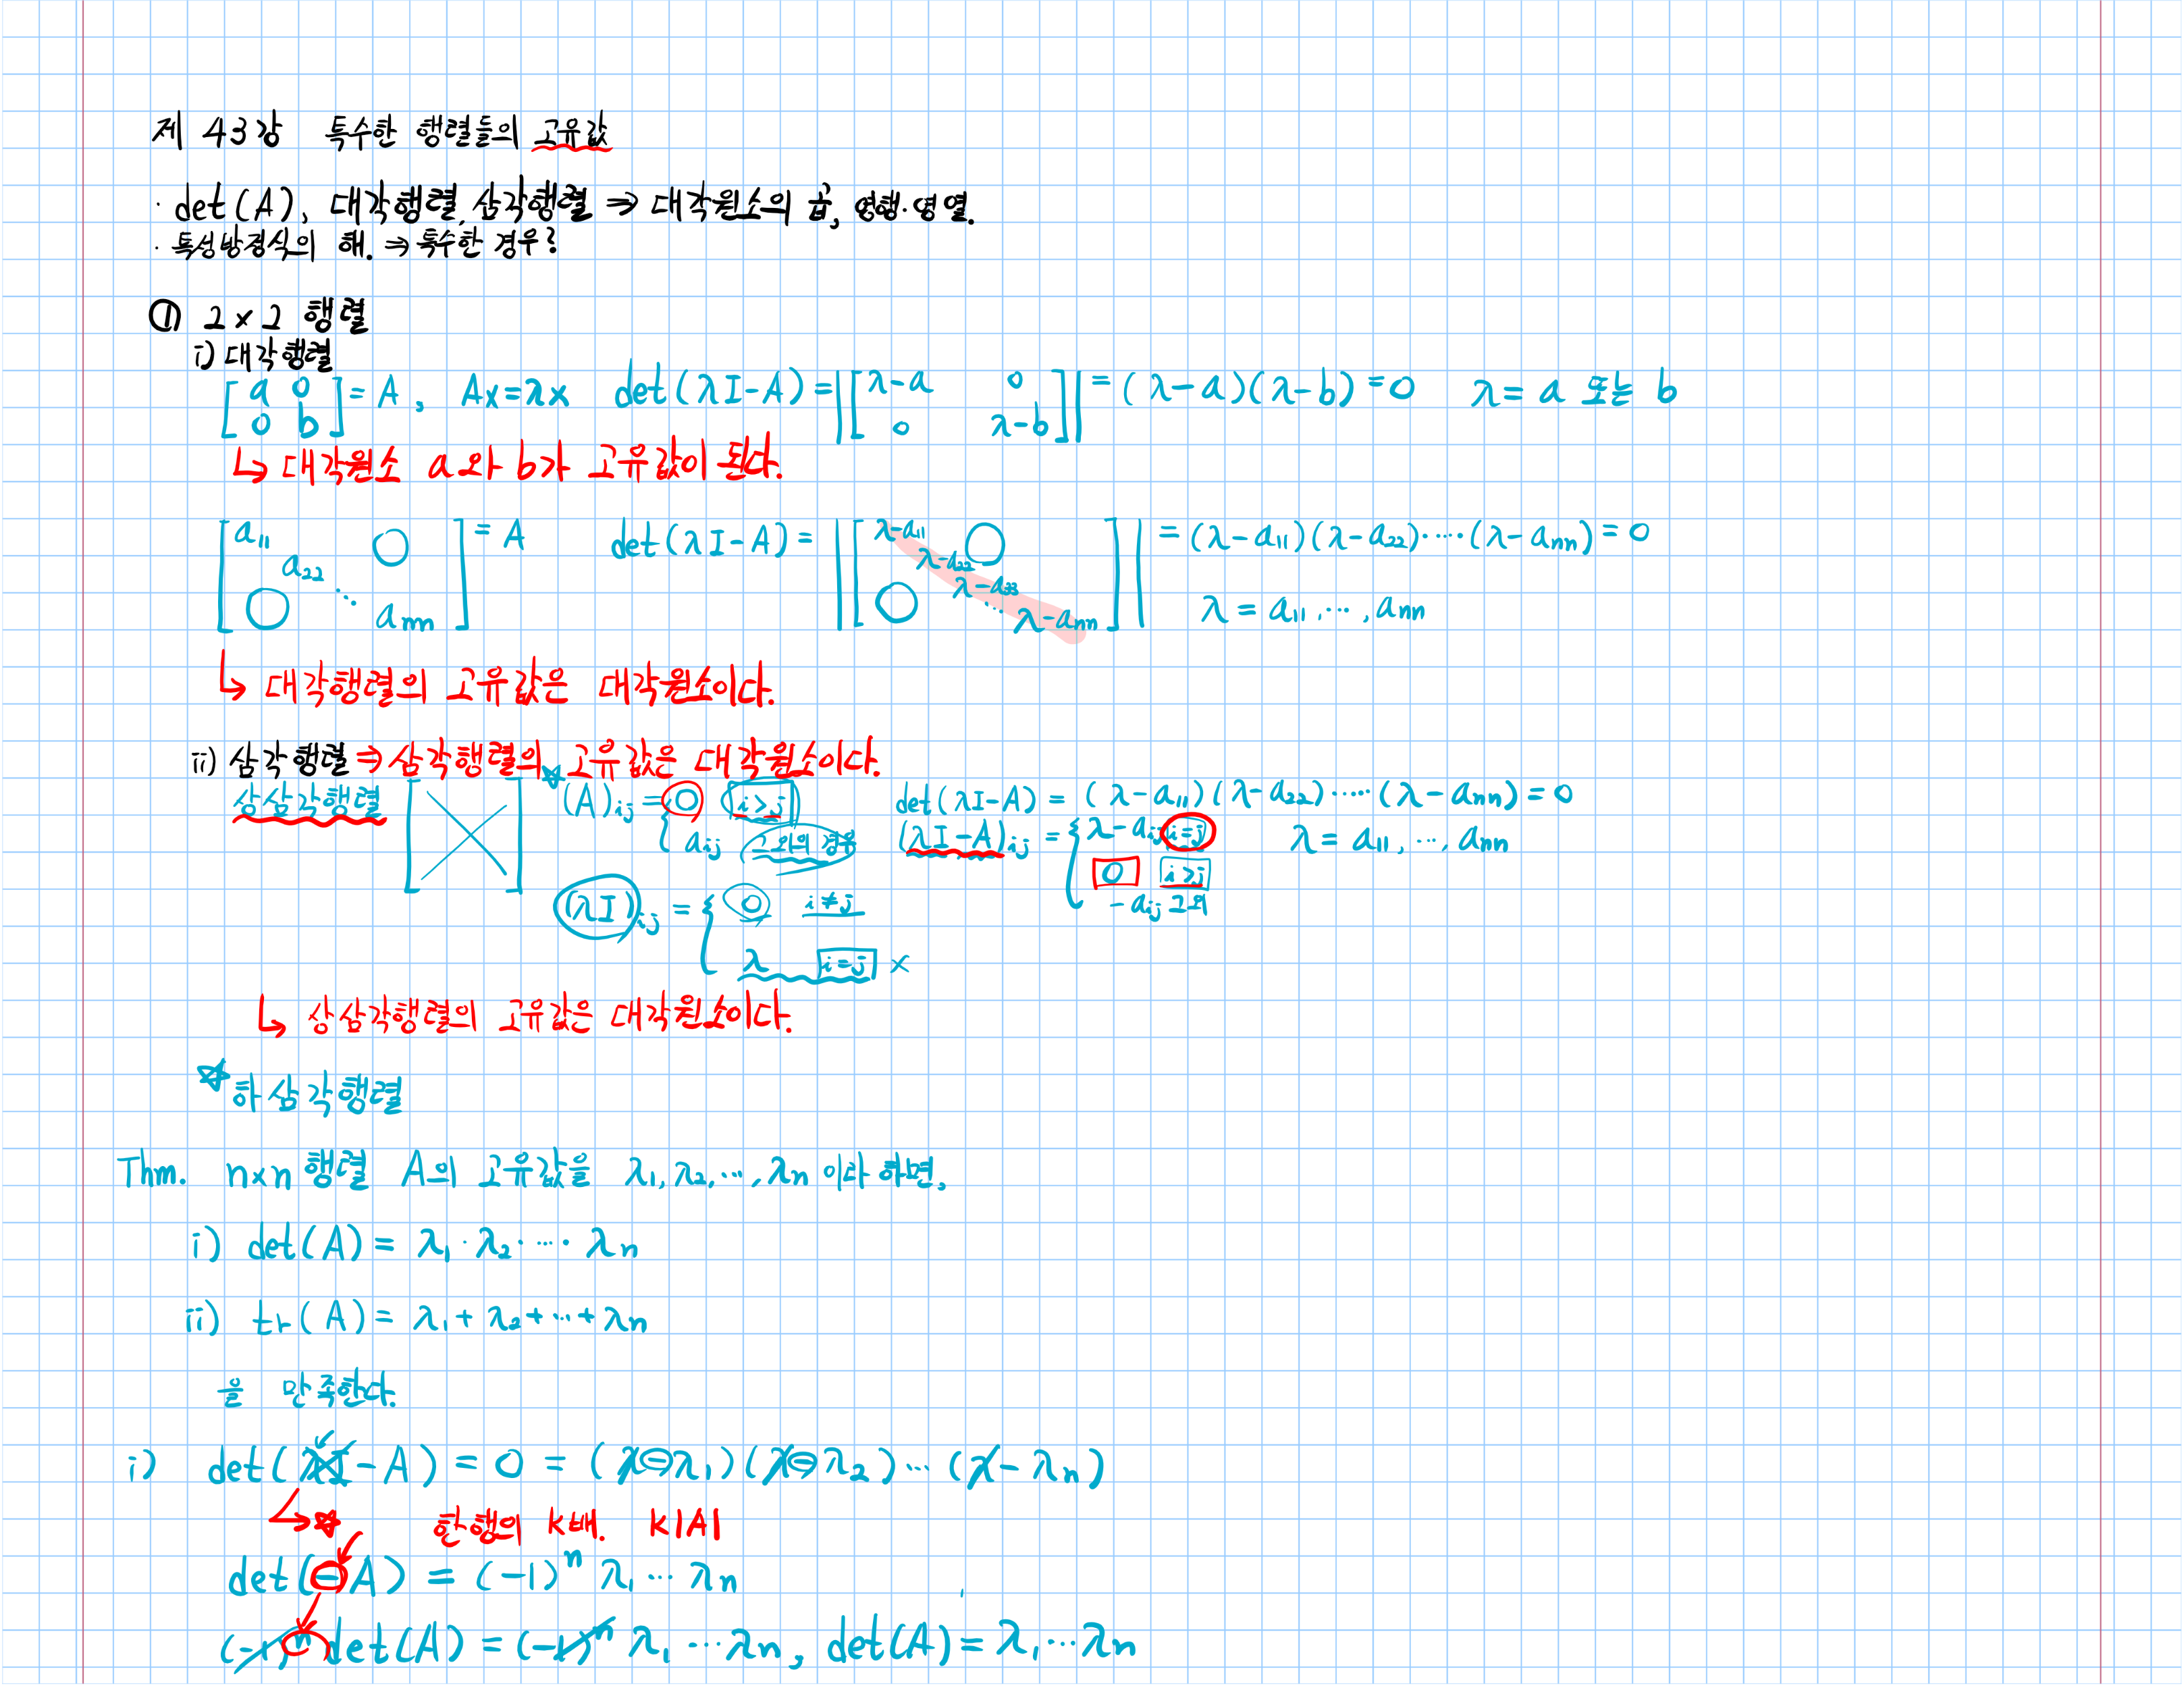 제 43강 특수한 행렬들의 고유값
· det(A), 대각행렬, 삼각행렬 ⇒ 대각원소의 곱, 영행·영열.
· 특성방정식의 해. ⇒ 특수한 경우?
① 2×2 행렬
i) 대각행렬
[a 0; 0 b] = A, Ax=λx det(λI-A) = |[λ-a 0; 0 λ-b]| = (λ-a)(λ-b) = 0 λ = a 또는 b
↳ 대각원소 a와 b가 고유값이 된다.
[a₁₁ a₂₂ ⋱ aₙₙ 0 0] = A det(λI-A) = |[λ-a₁₁ λ-a₂₂ λ-a₃₃ ⋱ λ-aₙₙ 0 0]| = (λ-a₁₁)(λ-a₂₂)·····(λ-aₙₙ) = 0
λ = a₁₁, ···, aₙₙ
↳ 대각행렬의 고유값은 대각원소이다.
ii) 삼각행렬 ⇒ 삼각행렬의 고유값은 대각원소이다.
상삼각행렬 ☆ (A)ij = { 0 i>j det(λI-A) = (λ-a₁₁)(λ-a₂₂)·····(λ-aₙₙ) = 0
aij 그외의 경우 (λI-A)ij = { λ-aij i=j λ = a₁₁, ···, aₙₙ
0 i>j
(λI)ij = { 0 i≠j -aij 그외
λ i=j ×
↳ 상삼각행렬의 고유값은 대각원소이다.
☆ 하삼각행렬
Thm. n×n 행렬 A의 고유값을 λ₁, λ₂, ···, λₙ 이라 하면,
i) det(A) = λ₁·λ₂····· λₙ
ii) tr(A) = λ₁+λ₂+···+λₙ
을 만족한다.
i) det(λI-A) = 0 = (λ-λ₁)(λ-λ₂)···(λ-λₙ)
↳ ☆ 한행의 k배. k|A|
det(-A) = (-1)ⁿ λ₁···λₙ
(-1)ⁿ det(A) = (-1)ⁿ λ₁···λₙ, det(A) = λ₁···λₙ